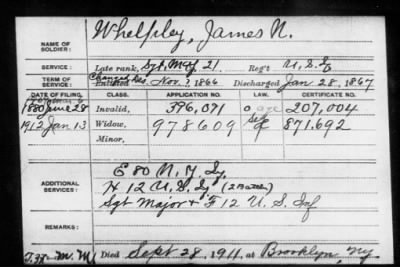 NAME OF SOLDIER: Whelpley, James N.
SERVICE: Late rank, Sgt. Maj. 21 Reg't U.S. I
TERM OF SERVICE: Enlisted Nov. 1866 Discharged Jan 28, 1867
DATE OF FILING. CLASS. APPLICATION NO. CERTIFICATE NO.
1880 June 28 Invalid, 396,071 207,004
1912 Jan 13 Widow, 978609 871,692
Minor,
ADDITIONAL SERVICES: E 80 N.Y. Iy
H 12 U.S. Iy (2 Battln)
Sgt Major + F 12 U.S. Inf
REMARKS:
Died Sept 28, 1911, at Brooklyn, Ny.